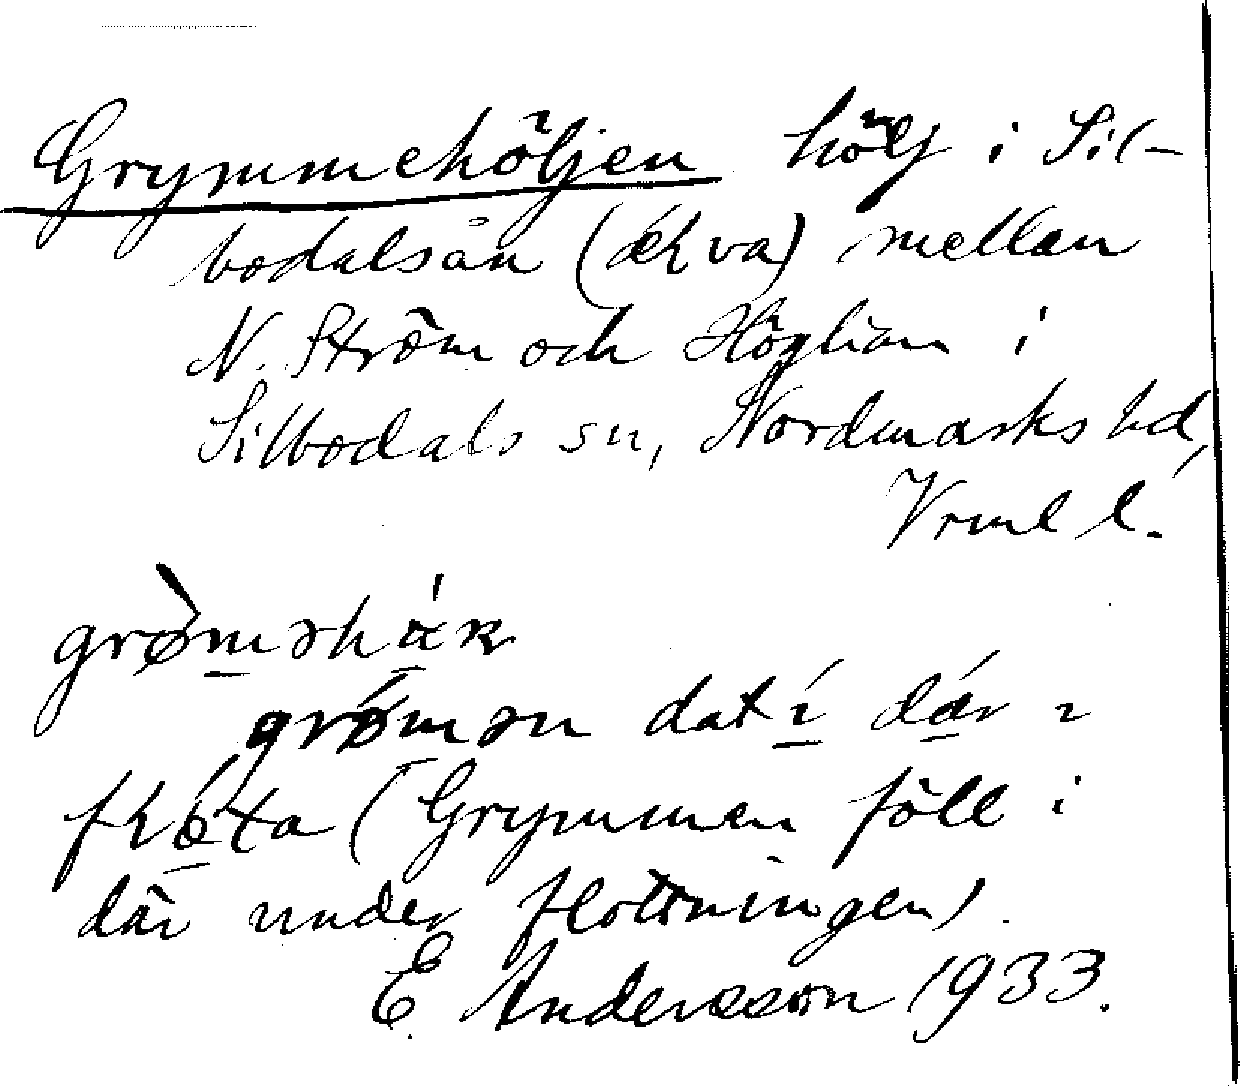 Grymmehöljen hölj i Sil-
bodalsån (ælva) mellan
N. Ström och Höglian i
Silbodals sn, Nordmarks hd,
Vrml l.
grømən datí dár ı
(Grymmen föll i
där under flottningen).
E. Andersson 1933.